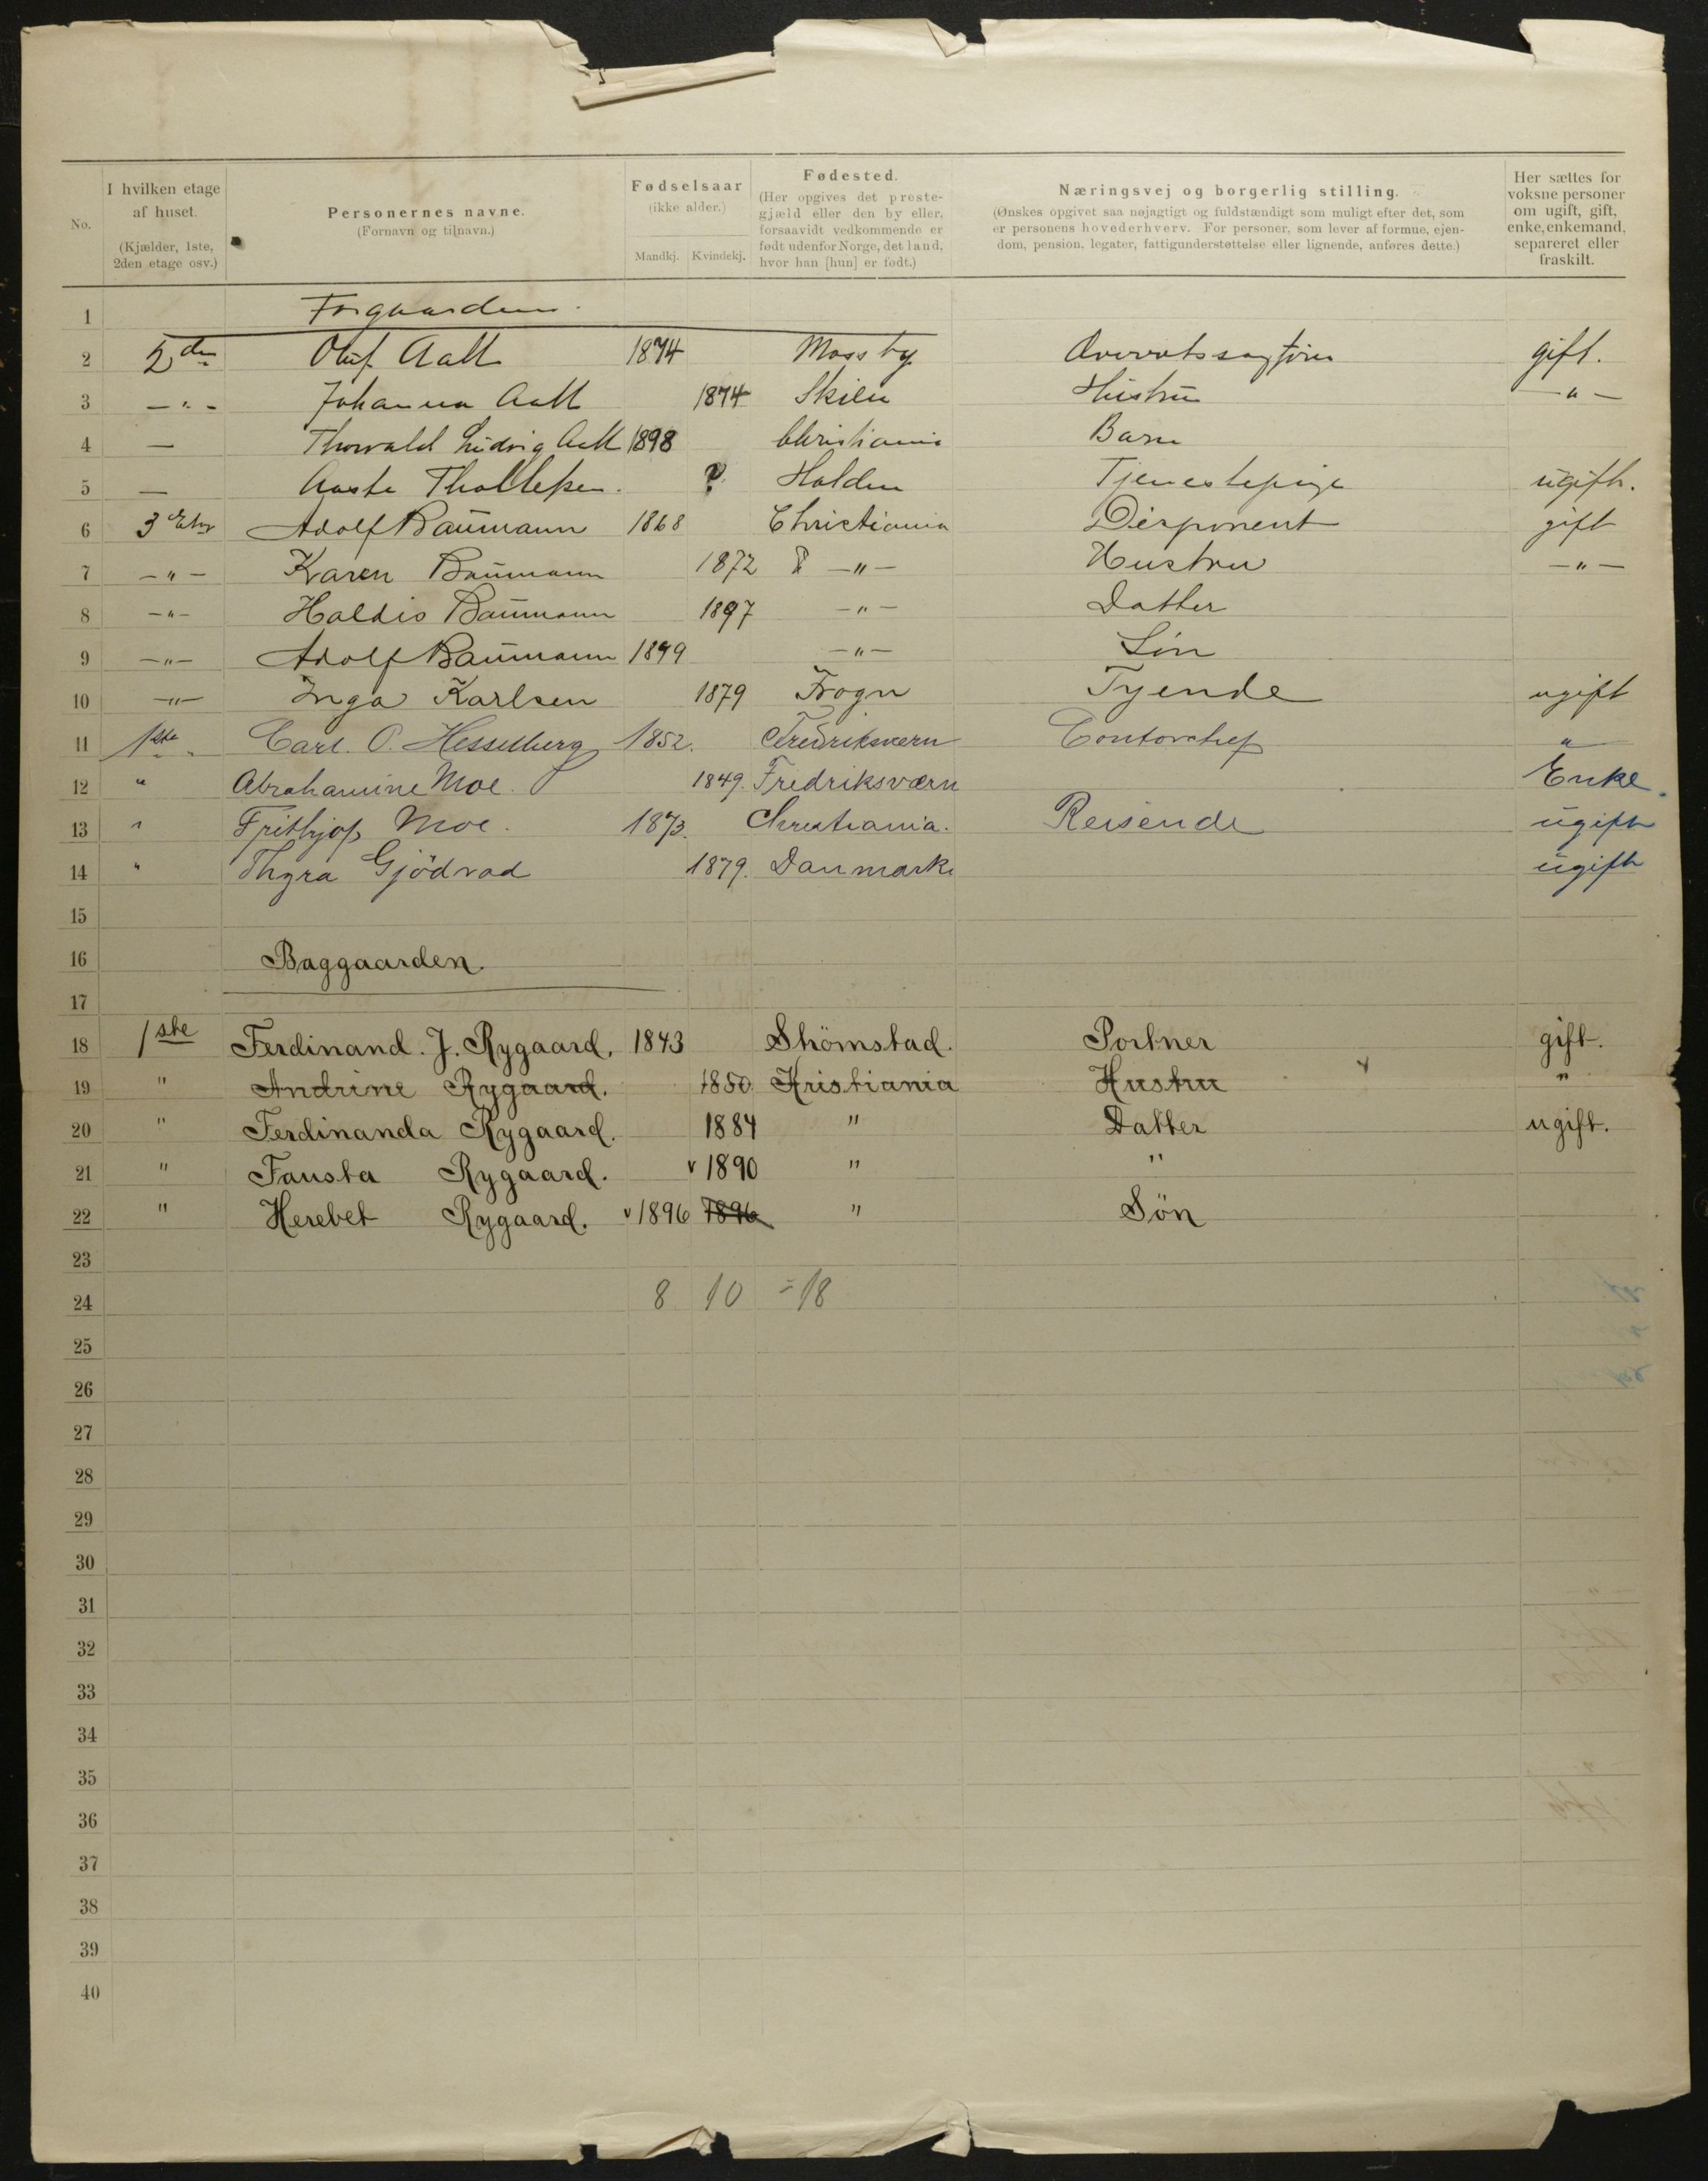 No.
I hvilken etage af huset. (Kjælder, 1ste, 2den etage osv.)
Personernes navne. (Fornavn og tilnavn.)
Fødselsaar (ikke alder.)
Mandkj. Kvindekj.
Fødested. (Her opgives det prestegjæld eller den by eller, forsaavidt vedkommende er født udenfor Norge, det land, hvor han [hun] er født.)
Næringsvej og borgerlig stilling. (Ønskes opgivet saa nøjagtigt og fuldstændigt som muligt efter det, som er personens hovederhverv. For personer, som lever af formue, ejendom, pension, legater, fattigunderstøttelse eller lignende, anføres dette.)
Her sættes for voksne personer om ugift, gift, enke, enkemand, separeret eller fraskilt.
1 Forgaarden
2 2den Oluf Aall 1874 Moss by Overretssagfører gift.
3 — " — Johanna Aall 1874 Skien Hustru — " —
4 — Thorvald Ludvig Aall 1898 Christiania Barn
5 — Aaste Thollefsen. ? Holden Tjenestepige ugift.
6 3 Etg Adolf Baumann 1868 Christiania Disponent gift
7 — " — Karen Baumann 1872 — " — Hustru — " —
8 — " — Haldis Baumann 1897 — " — Datter
9 — " — Adolf Baumann 1899 — " — Søn
10 — " — Inga Karlsen 1879 Frogn Tyende ugift
11 1ste Carl. O. Hesselberg 1852. Fredriksvern Contorchef "
12 " Abrahamine Moe. 1849. Fredriksværn Enke.
13 " Frithjof Moe. 1873. Christiania. Reisende ugift
14 " Thyra Gjödvad 1879. Danmark. ugift
15
16 Baggaarden.
17
18 1ste Ferdinand. J. Rygaard. 1843 Strömstad. Portner gift.
19 " Andrine Rygaard. 1850 Kristiania Hustru "
20 " Ferdinanda Rygaard. 1884 " Datter ugift.
21 " Fausta Rygaard. v 1890 " "
22 " Herebet Rygaard. v 1896 1896 " Sön
23
24 8 10 = 18
25
26
27
28
29
30
31
32
33
34
35
36
37
38
39
40